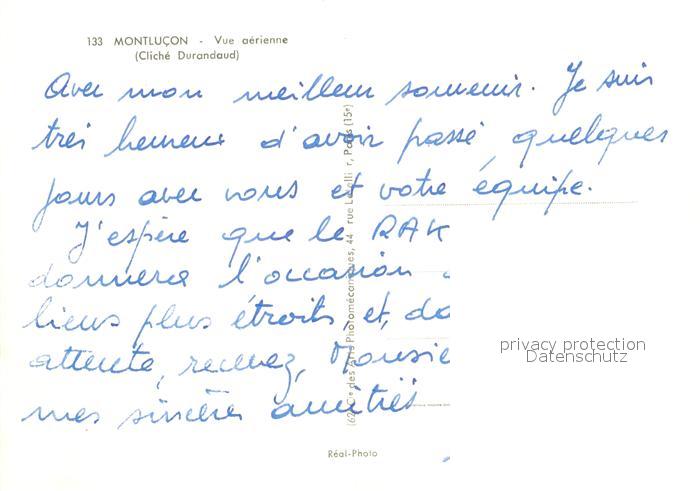 133 MONTLUÇON - Vue aérienne
(Cliché Durandaud)
Avec mon meilleur souvenir. Je suis
très heureux d'avoir passé quelques
jours avec vous et votre équipe.
J'espère que le RAK
donnera l'occasion
liens plus étroits et, da
attente, recevez, Monsie
mes sincères amitiés
Cie des Arts Photomécaniques, 44, rue Letellier, Paris (15e)
privacy protection
Datenschutz
Réal-Photo